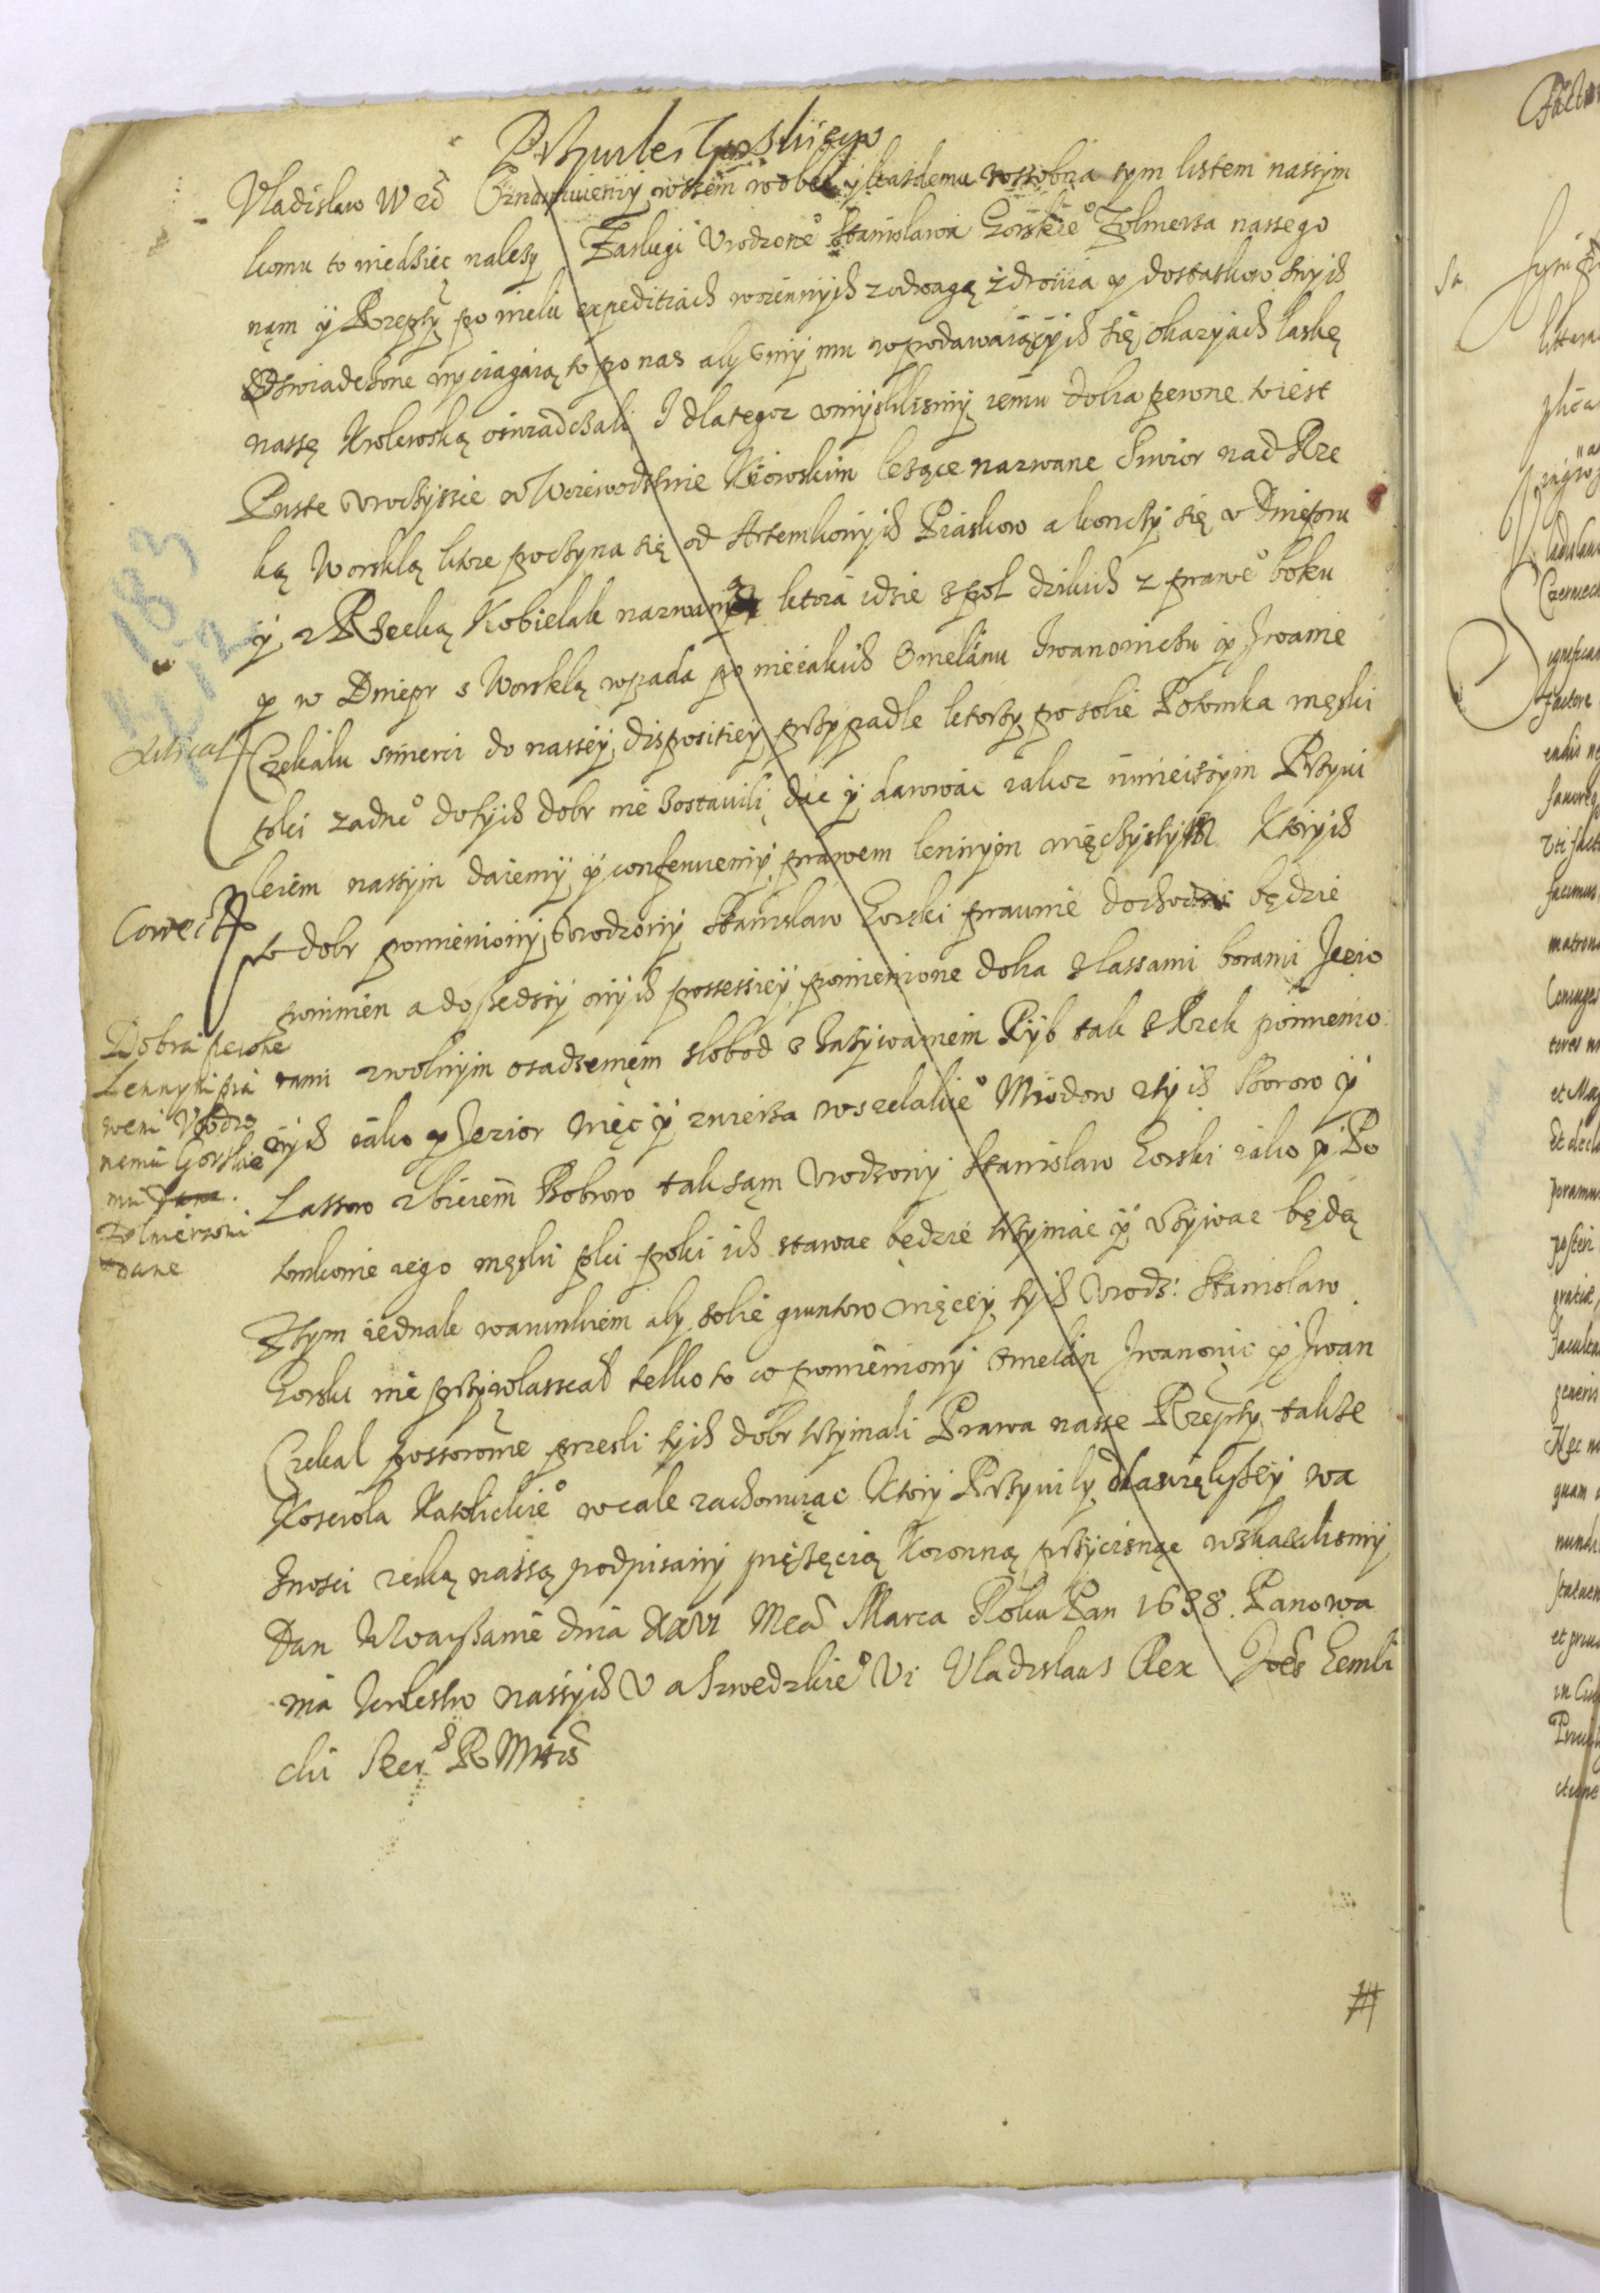 Vladislaw W etc Oznaymuiemy wszem wobec y kazdemu zossobna tym listem nassym
komu to wiedziec nalezy Zaslugi Vrodzone° Stanislawa Gorskie° Zolnerza nassego
nąm y Rzepty po wielu expeditiach woiennych z odwagą zdrowia y dostatkow swych
oświadczone wyciągaią to po nas abysmy mu w podawaiących się okazyach laskę
nassę Krolewską oswiadczali I dlategoz vmyslilismy iemu dobra pewne to iest
Puste vroczyssce w Woiewodstwie Kiowskim lezące nazwane Swior nad Rze
ką Worsklą ktore poczyna się od Artemkowych Piaskow a konczy się w Dniepru
y z Rzeczką Kobielak nazwaną ktora idzie z pol dzikich z prawe° boku
y w Dniepr s Worsklą wpada po nieiakich Omelanu Iwanowiczu y Iwanie
Czekalu smierci do nassey dispositiey przypadle ktorzy po sobie Potomka męski
plci zadne° do tych dobr nie zostawili dac y darowac iakoz ninieiszym Przywi
leiem naszym daiemy y conferuiemy prawem lennym wieczystym Ktorych
to dobr pomieniony Vrodzony Stanislaw Gorski prawnie dochodzic będzie
powinien a doszedszy onych possessiey pomienione dobra z lassami borami Jezio
rami z wolnym osadzeniem slobod z zazywaniem Ryb tak z Rzek pomienio
nych iako y Jezior więc y zwierza wszelakie° Miodow z tych Borow y
Lassow z biciem Bobrow tak sąm Vrodzony Stanislaw Gorski iako y Po
tomkowie iego męski plci poki ich stawac będzie trzymac y vzywac będą
Ztym iednak warunkiem aby sobie gruntow więcey tych Vrodz: Stanislaw
Gorski nie przywlasscal telko to co pomieniony Omelan Iwanowic y Iwan
Czekal possorome przesli tych dobr trzymali Prawa nasse Rzepty takze
Kosciola Katolickie° wcale zachowuiąc Ktory Przywiley dla większey wa
znosci ręką nassą podpisany pieczęcią Koronną przycisnąc wskazalismy
Dan w Warszawie dnia XXVI Mca Marca Roku Pan 1638. Panowa
nia Krolestw nassych V a Szwedzkie° VI Vladislaus Rex Joes Gembi
cki Secr R Mttis
Correct
Dobra pewne
Lennym pra
wem Vrodzo
nemu Gorskie
mu
Zolnierzowi
dane
183